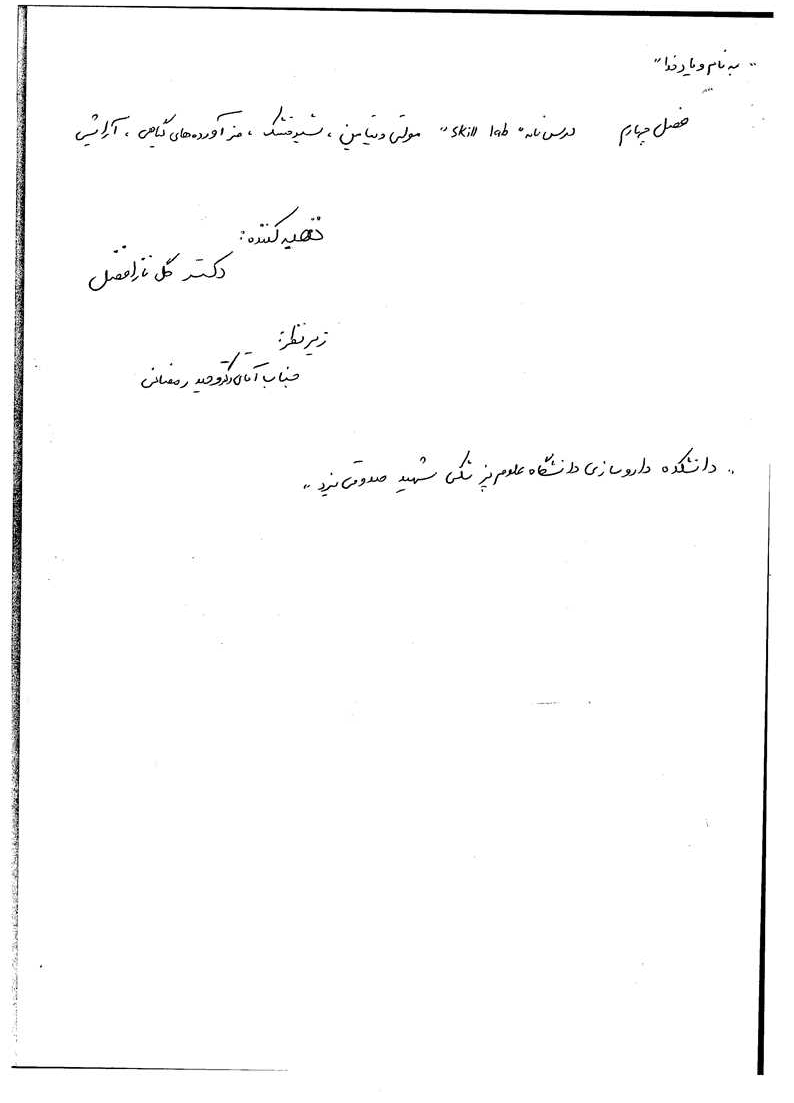 "به نام و یاد خدا"
فصل چهارم درس نامه "skill lab" مولتی ویتامین ، شیرخشک ، فرآورده‌های گیاهی ، آرایشی
تهیه کننده:
دکتر گل ناز افضل
زیر نظر:
جناب آقای دکتر وحید رمضانی
"دانشکده داروسازی دانشگاه علوم پزشکی شهید صدوقی یزد"